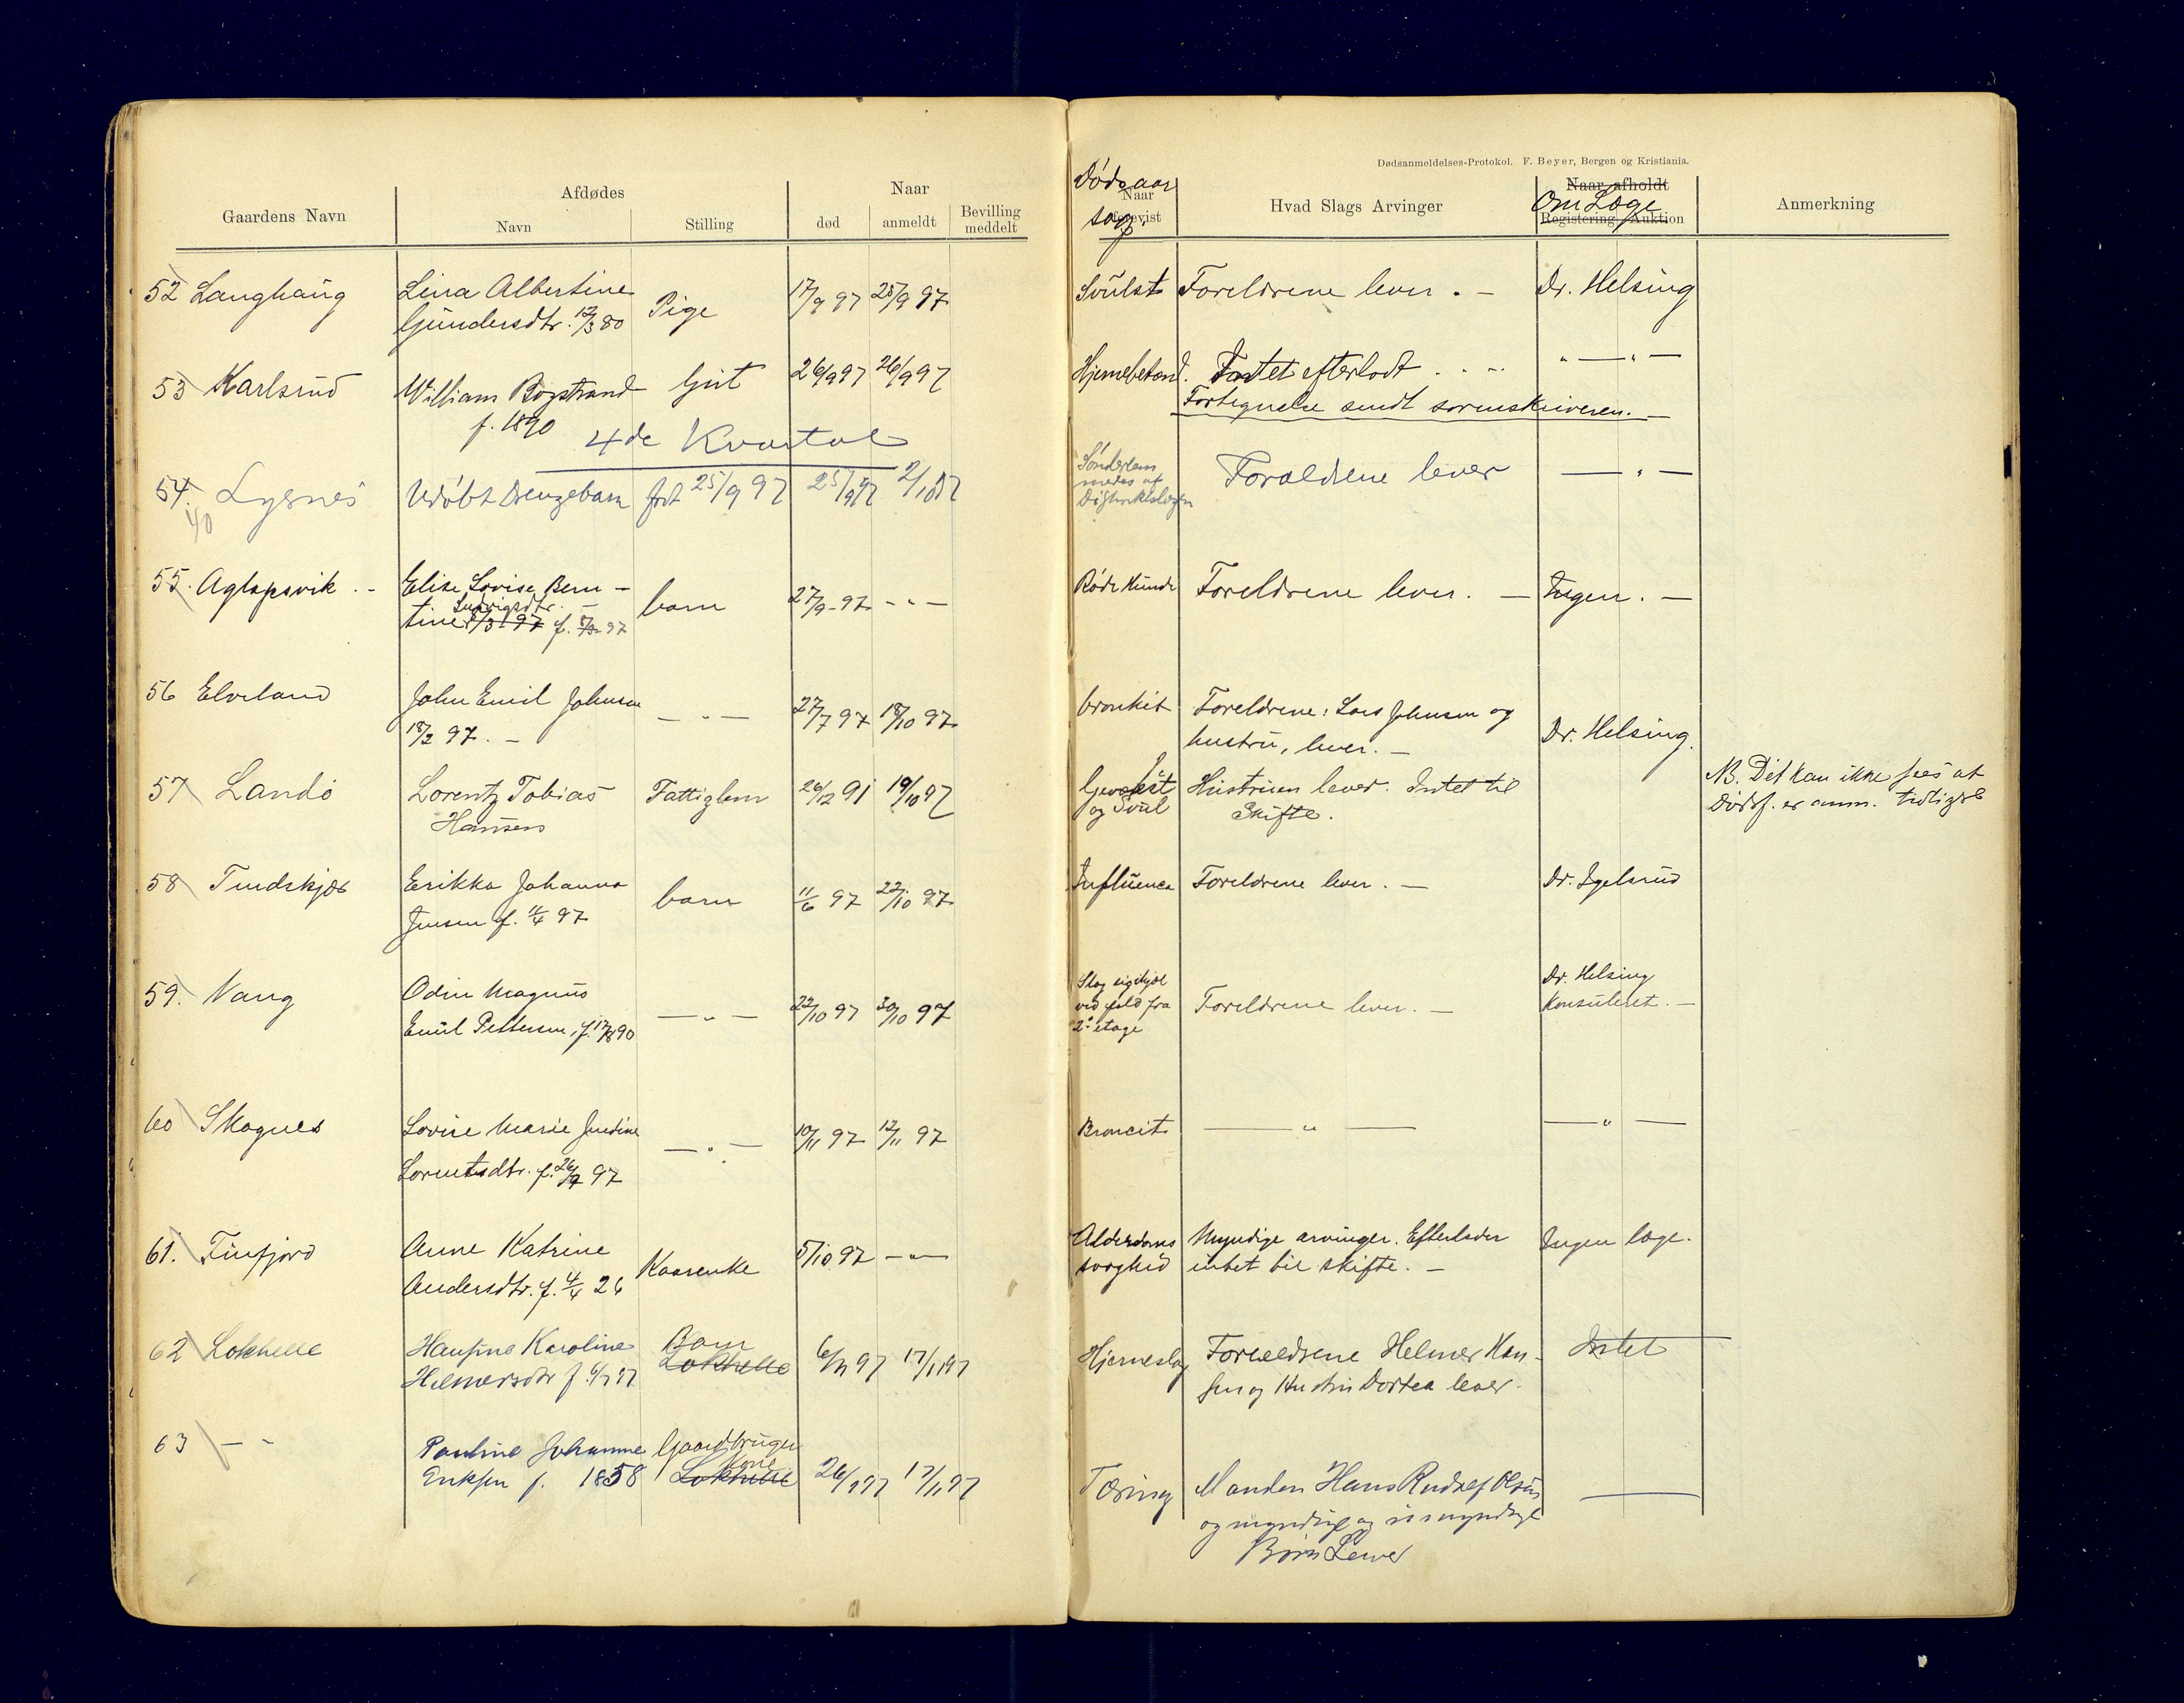 Dødsanmeldelses-Protokol. F. Beyer, Bergen og Kristiania.
Gaardens Navn
Afdødes
Navn
Stilling
Naar
død
anmeldt
Bevilling
meddelt
Dødsaar
sag.
Naar
Hvad Slags Arvinger
Naar afholdt
Om Læge
Registering Auktion
Anmerkning
52 Langhaug Lina Albertine Pige 17/9 97 25/9 97 Svulst Foreldrene lever. — Dr. Helsing
Gundersdtr. 12/3 80
53 Karlsrud William Bogstrand Gut 26/9 97 26/9 97 Hjernebetænd. Intet efterladt — " —
f. 1890 Fortegnelse sendt sorenskriveren. —
4de Kvartal
54. Lysnes Udøbt Drengebarn født 25/9 97 25/9 97 2/10 97 Sønderlem
medes af
Distriktslægen
Forældrene lever — " —
40
55. Aglapsvik. - Elise Lovise Bern - barn 27/9 - 97 - " - Røde Hunde Foreldrene lever. — Ingen. —
Ludvigsdtr. —
tine 8/3 97 f. 8/3 97
56 Elveland John Emil Johnsen — " — 27/7 97 18/10 97 bronkit Foreldrene: Lars Johnsen og Dr. Helsing.
18/2 97. — hustru, lever. —
57 Landø Lorentz Tobias Fattiglem 26/12 91 19/10 97 Hustruen lever. Intet til NB. Det kan ikke sees at
Hansen og Svul Skifte. Dødsf. er anm. tidligere
58 Tindskjær Erikka Johanna barn 11/6 97 22/10 97 Influenca Foreldrene lever. — Dr. Igelsrud
Jensen f. 11/4 97
59. Vang Odin Magnus — " — 22/10 97 30/10 97 Slog sig ihjel
ved fald fra
2. etage
Foreldrene lever. — Dr. Helsing
Konsuleret. —
Emil Pettersen, f. 17/8 90
60 Skognes Lovise Marie Jentine — " — 10/11 97 12/11 97 Broncit — " — — " —
Lorentsdtr. f. 26/9 97
61. Finfjord Anne Katrine Kaarenke 5/10 97 — " — Alderdoms Myndige arvinger. Efterlader Ingen læge.
Andersdtr. f. 4/4 26 svaghed intet til skifte. —
62 Lokhelle Hansine Karoline Barn 6/11 97 17/11 97 Hjerneslag Forældrene Helmer Han- Intet
Helmersdtr f. 6/7 97 Lokhelle sen og Hustru Dortea lever.
63 — - Pauline Johanne Gaardbruger 26/9 97 17/11 97 Tæring Manden Hans Rudolf Olsen —
Eriksen f. 1858 Kone
Lokhelle og myndige og umyndige
Børn Lever